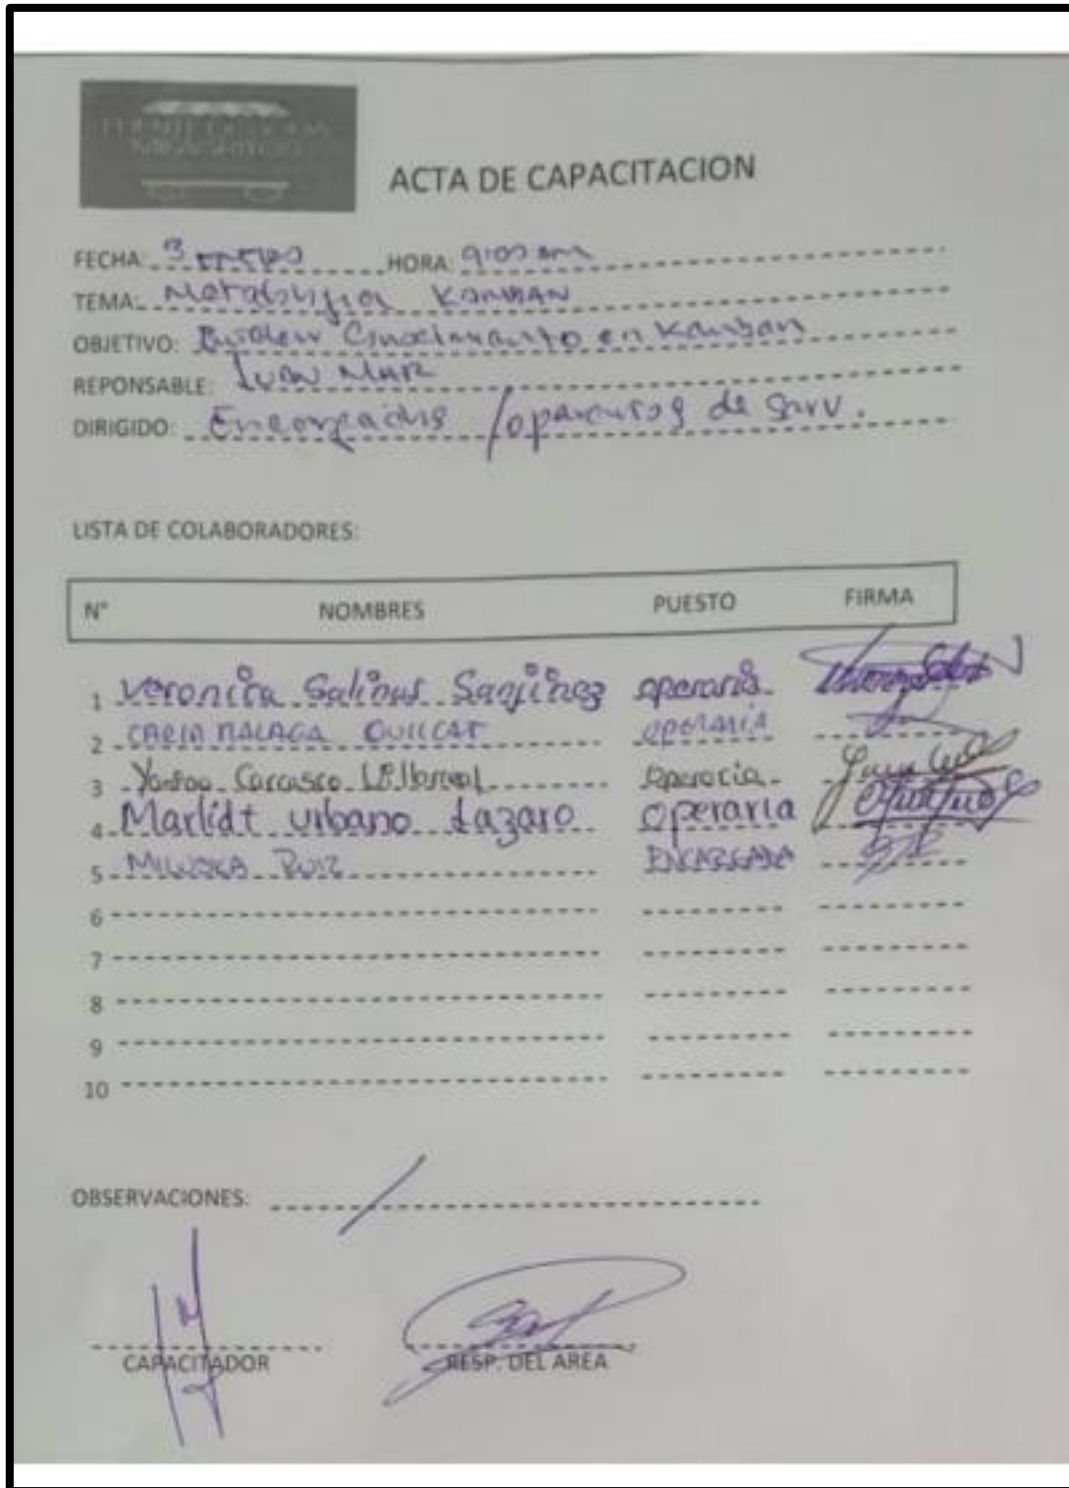 ACTA DE CAPACITACION
FECHA: 3 enero HORA 9:00 am
TEMA: Metodología KANBAN
OBJETIVO: Conocimiento en Kanban
REPONSABLE:
DIRIGIDO: Encargados / operarios de serv.
LISTA DE COLABORADORES:
N° NOMBRES PUESTO FIRMA
1 Veronica Salinas Sanjinez operaria
2 MALAGA operaria
3 Carrasco Villarreal operaria
4 Marlidt urbano Lazaro operaria
5 RUIZ ENCARGADA
6
7
8
9
10
OBSERVACIONES: /
CAPACITADOR RESP. DEL AREA